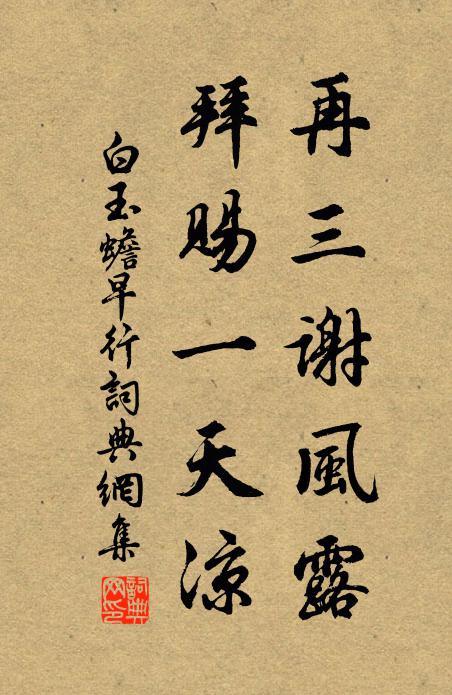 再三謝風露
拜賜一天涼
白玉蟾早行詞典網集
詞典网印